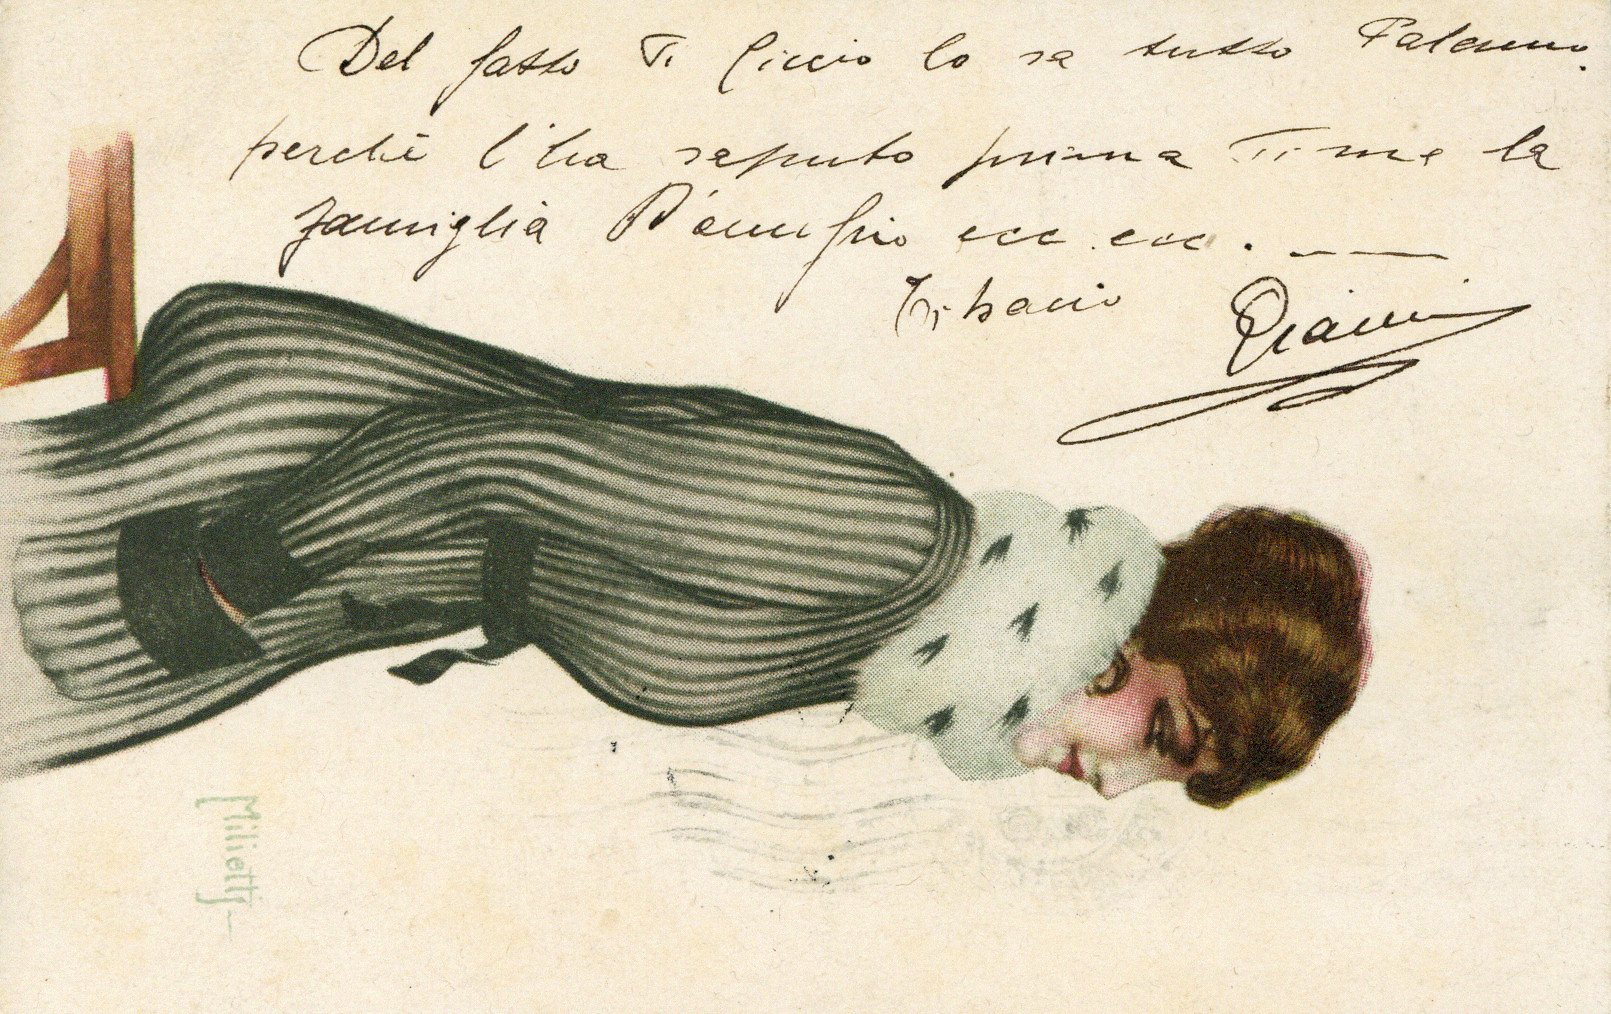 Del fatto Ti Ciccio lo sa tutto Palermo.
perché l'ha saputo prima Ti me la
famiglia D'Amufrio ecc. ecc. . ———
Ti bacio Gianni
Milietti